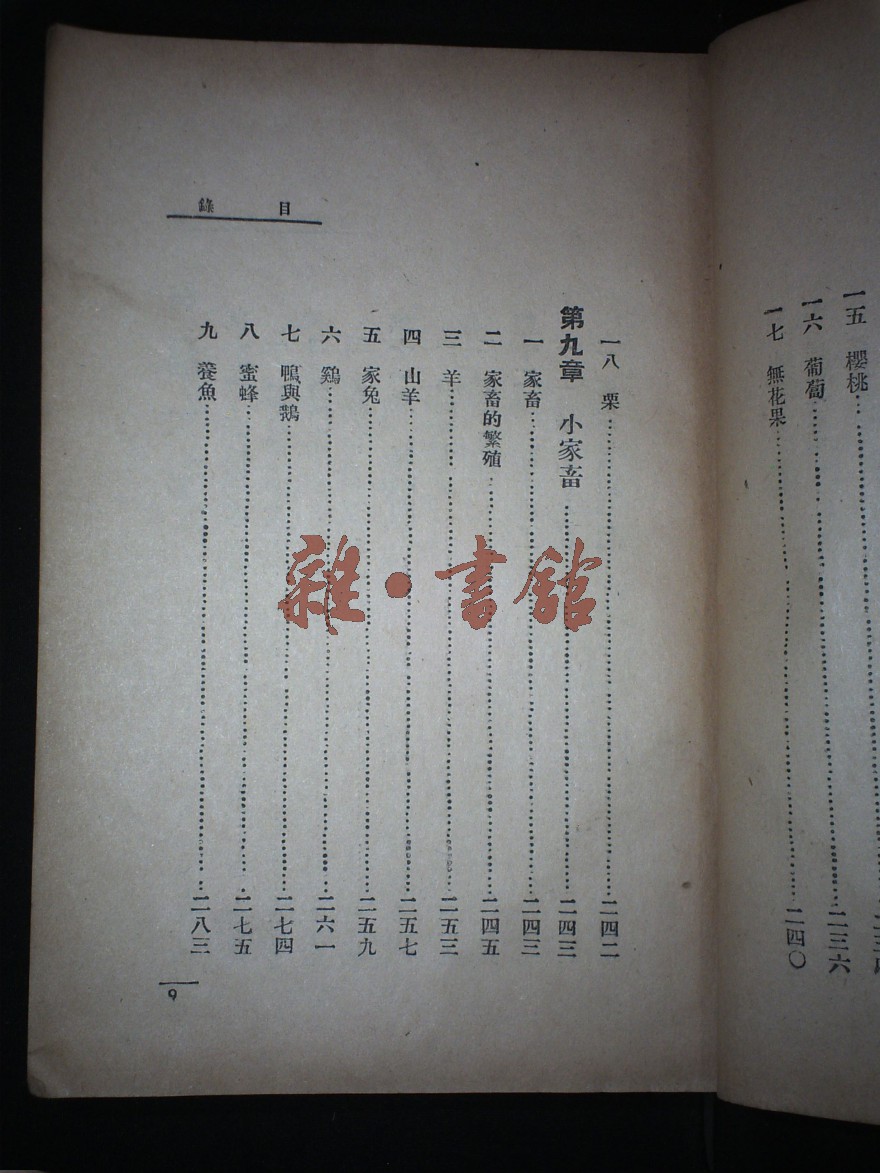 一五 櫻桃
一六 葡萄 二三六
一七 無花果 二四〇
目錄
一八 栗 二四二
第九章 小家畜 二四三
一 家畜 二四三
二 家畜的繁殖 二四五
三 羊 二五三
四 山羊 二五七
五 家兔 二五九
六 鷄 二六一
七 鴨與鵝 二七四
八 蜜蜂 二七五
九 養魚 二八三
9
雜·書館